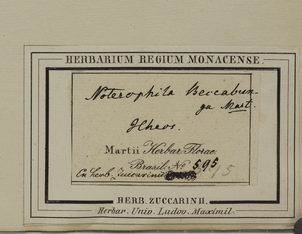 HERBARIUM REGIUM MONACENSE.
Noterophila Beccabun-
ga Mart.
Ilheos.
Martii Herbar. Florae
Brasil. No 595
Ex herb. Zuccarinii
HERB. ZUCCARINII.
Herbar. Univ. Ludov. Maximil.